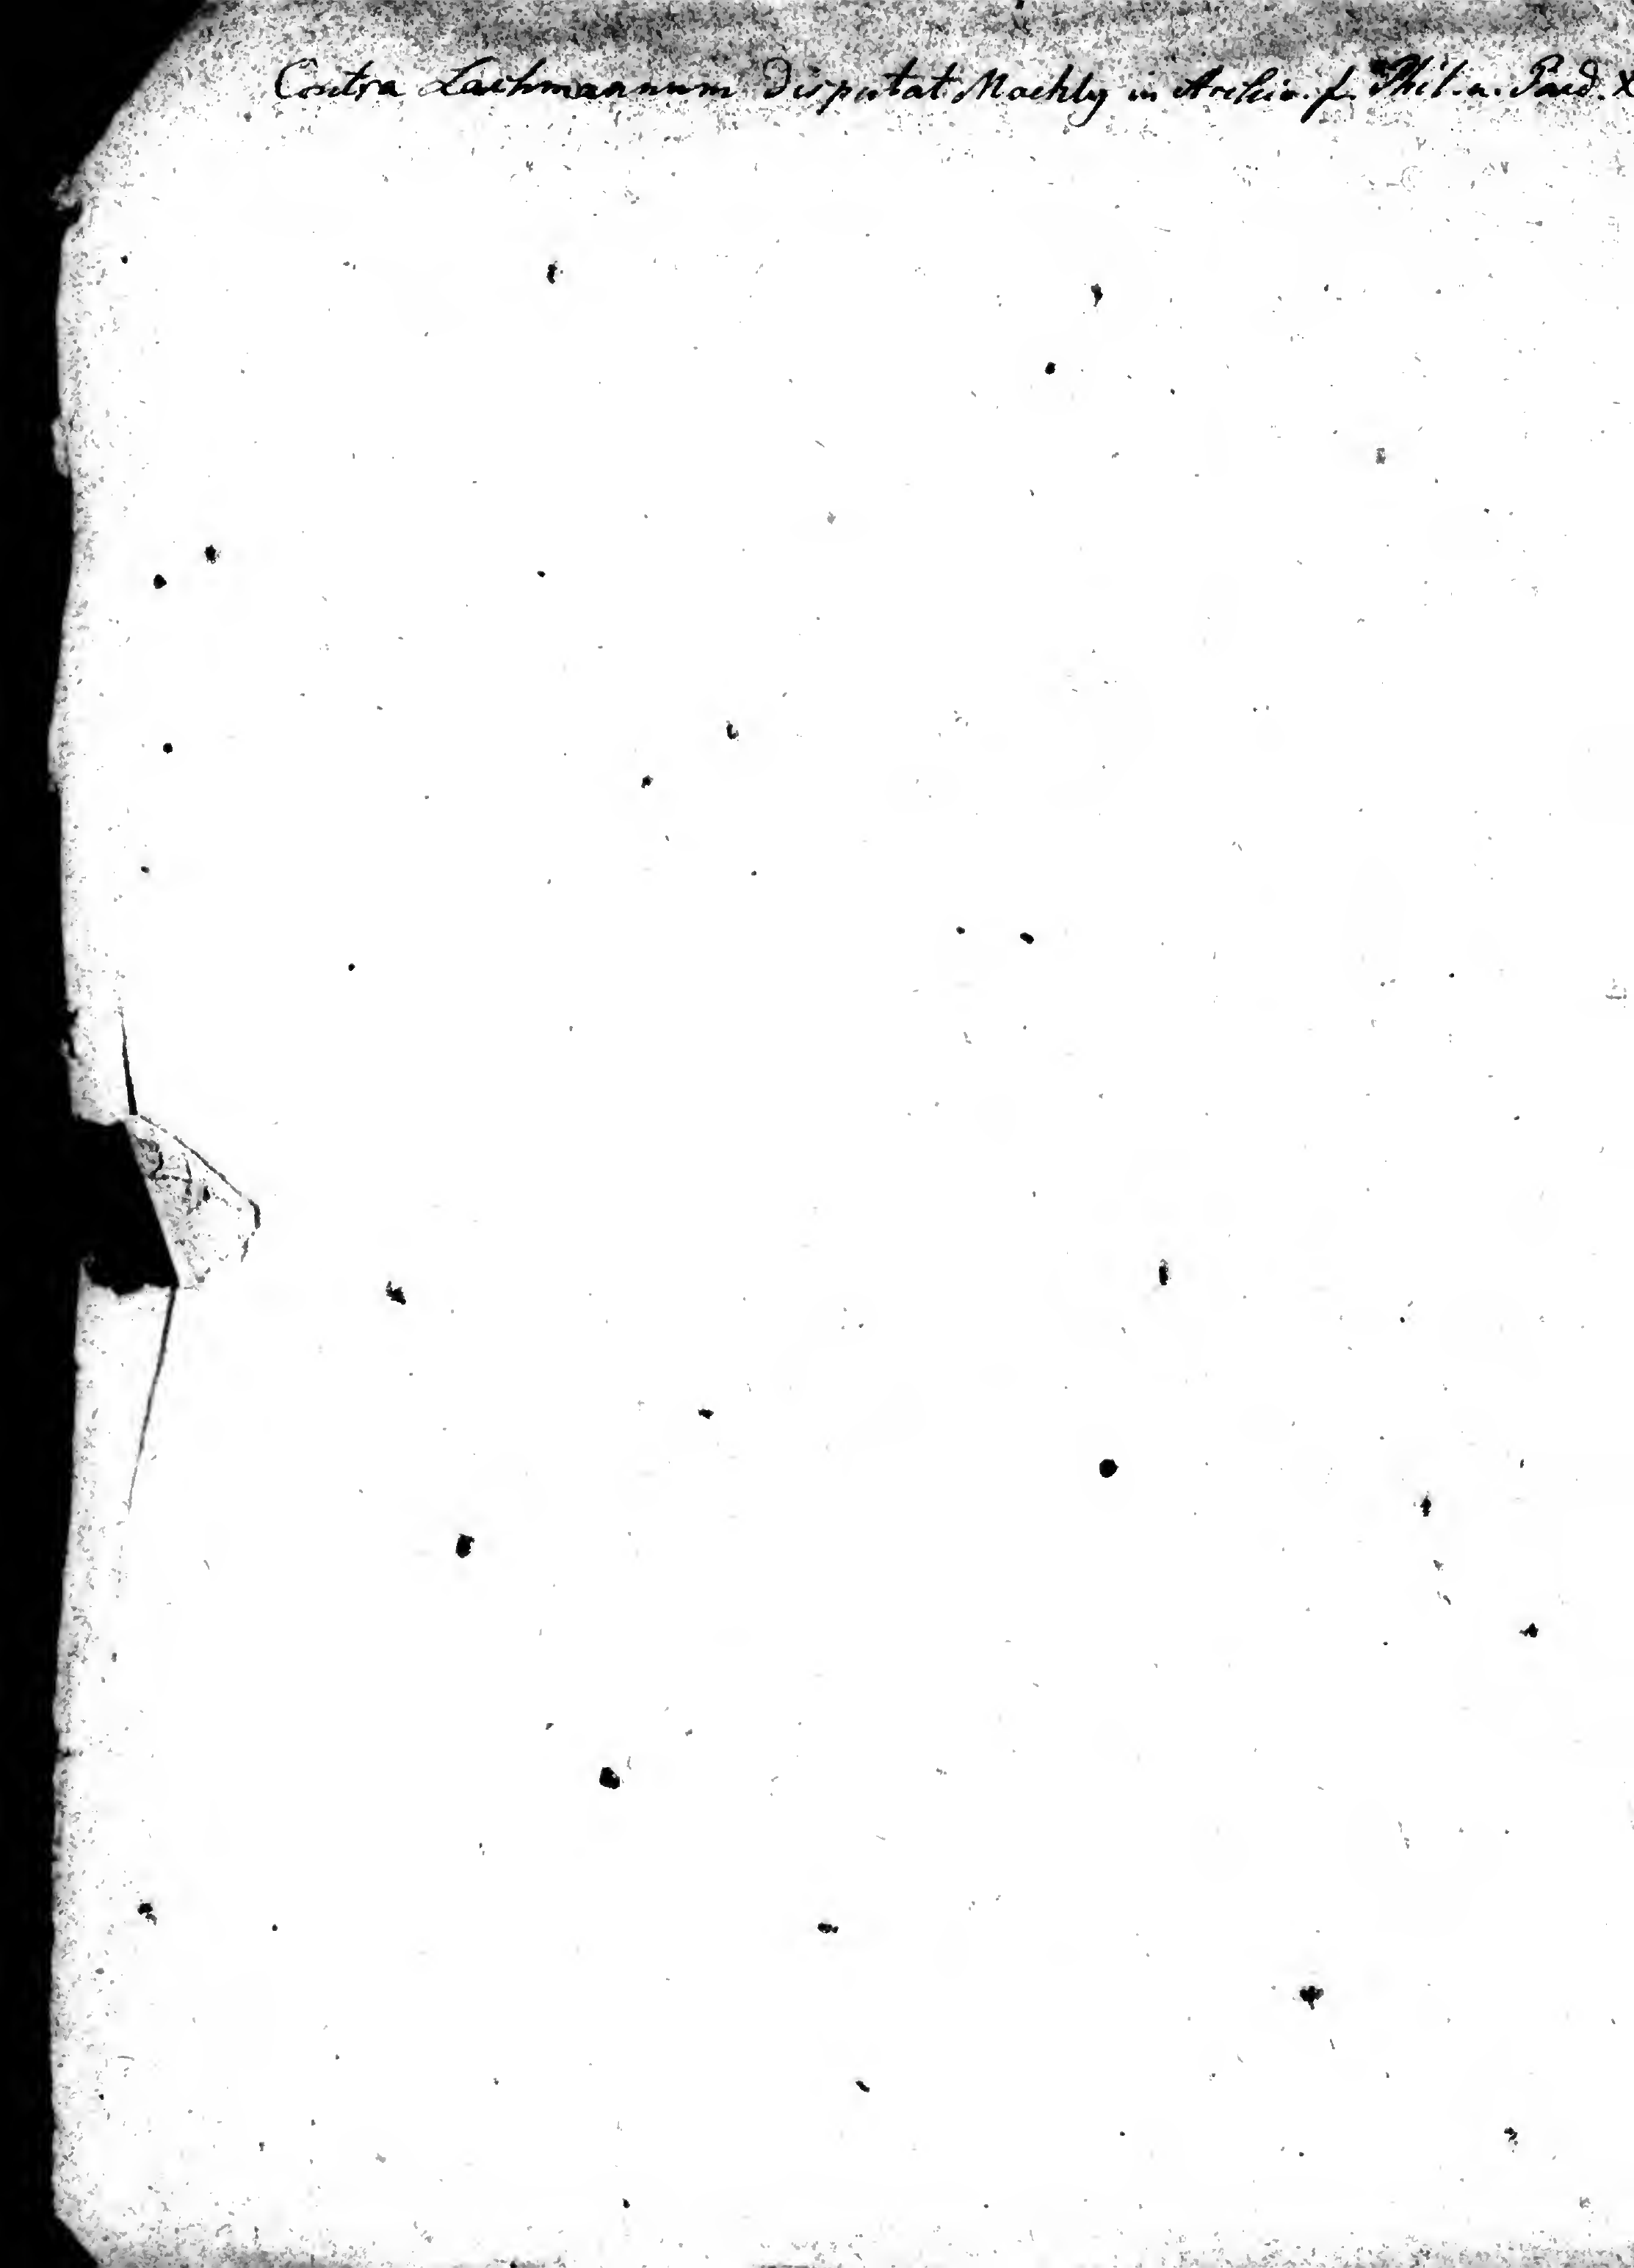 Contra Lachmannum disputat Maehly in Archiv. f. Phil. u. Paed. X